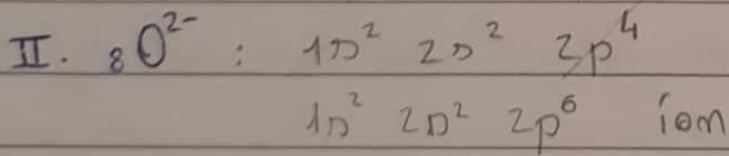 II. ₈O²⁻ : 1s² 2s² 2p⁴
1s² 2s² 2p⁶ íon